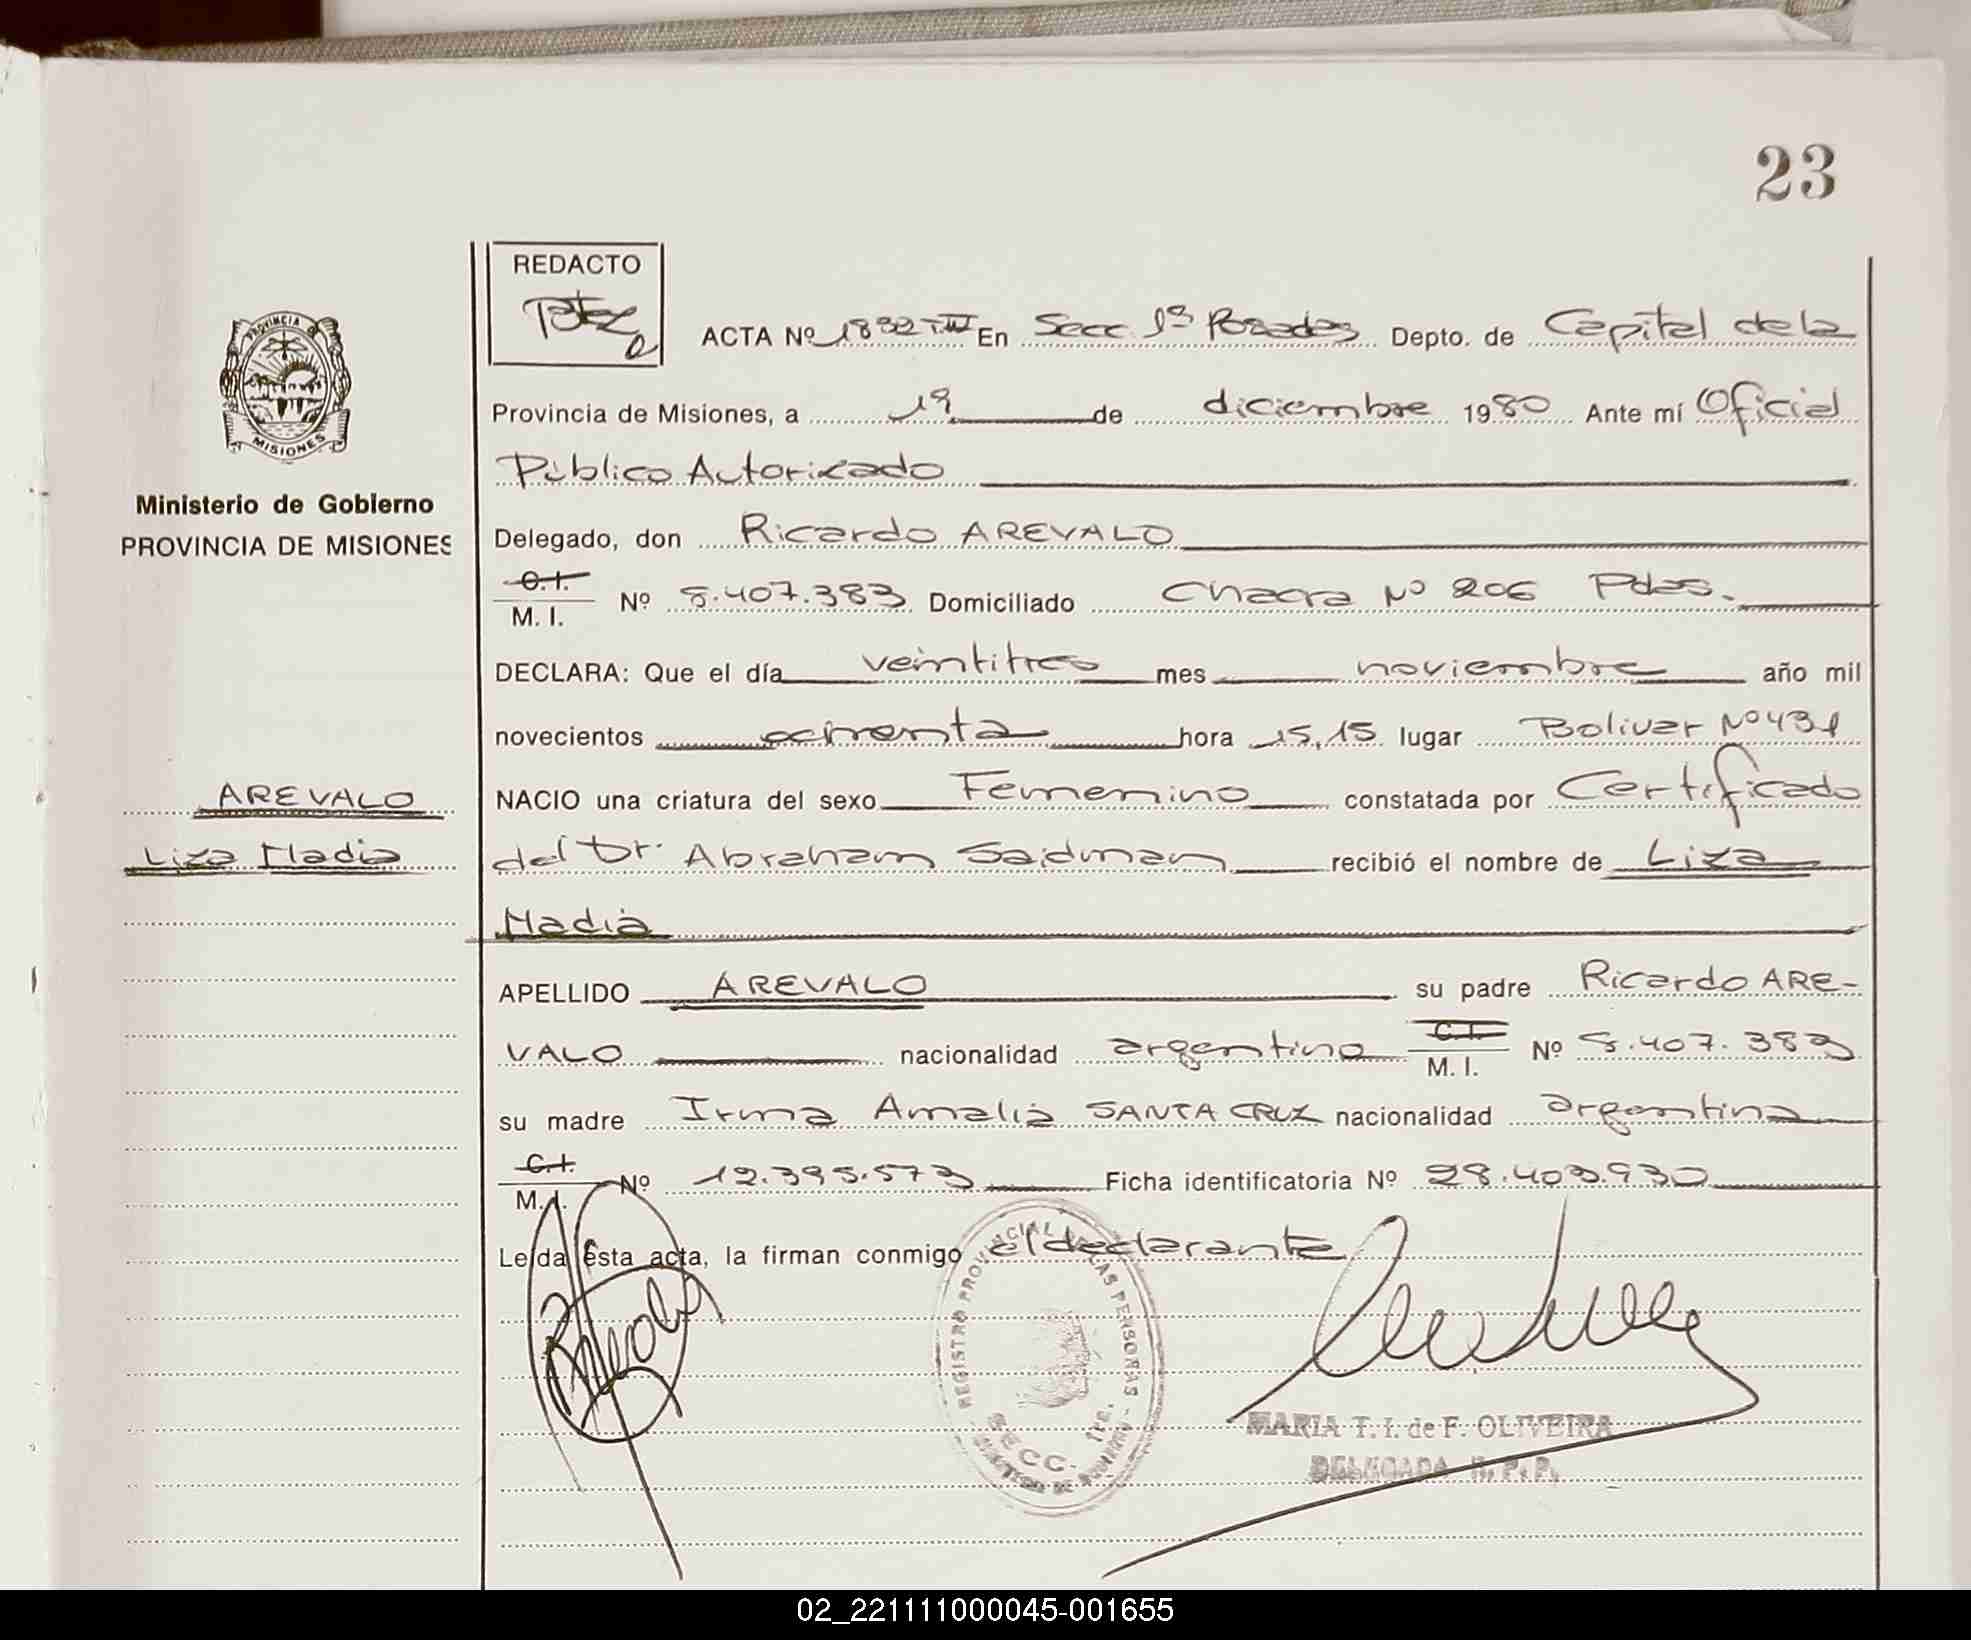 23
REDACTO
PROVINCIA D
MISIONES
ACTA Nº 1832 T.III En Secc. 1ª Posadas Depto. de Capital de la
Provincia de Misiones, a 19 de diciembre 1980 Ante mí Oficial
Público Autorizado
Ministerio de Gobierno
PROVINCIA DE MISIONES
Delegado, don Ricardo AREVALO
C.I.
M. I. Nº 8.407.383 Domiciliado Chacra Nº 206 Pdas.
DECLARA: Que el día veintitres mes noviembre año mil
novecientos ochenta hora 15,15 lugar Bolivar Nº 431
AREVALO
NACIO una criatura del sexo Femenino constatada por Certificado
Liza Nadia
del Dr. Abraham Saidman recibió el nombre de Liza
Nadia
APELLIDO AREVALO su padre Ricardo ARE-
VALO nacionalidad argentino C.I. M. I. Nº 8.407.383
su madre Irma Amalia SANTA CRUZ nacionalidad argentina
C.I.
M. I. Nº 12.395.573 Ficha identificatoria Nº 28.403.930
Leída ésta acta, la firman conmigo el declarante
REGISTRO PROVINCIAL DE LAS PERSONAS
SECC. 1ra.
MARIA T. I. de F. OLIVEIRA
DELEGADA R. P. P.
02_221111000045-001655